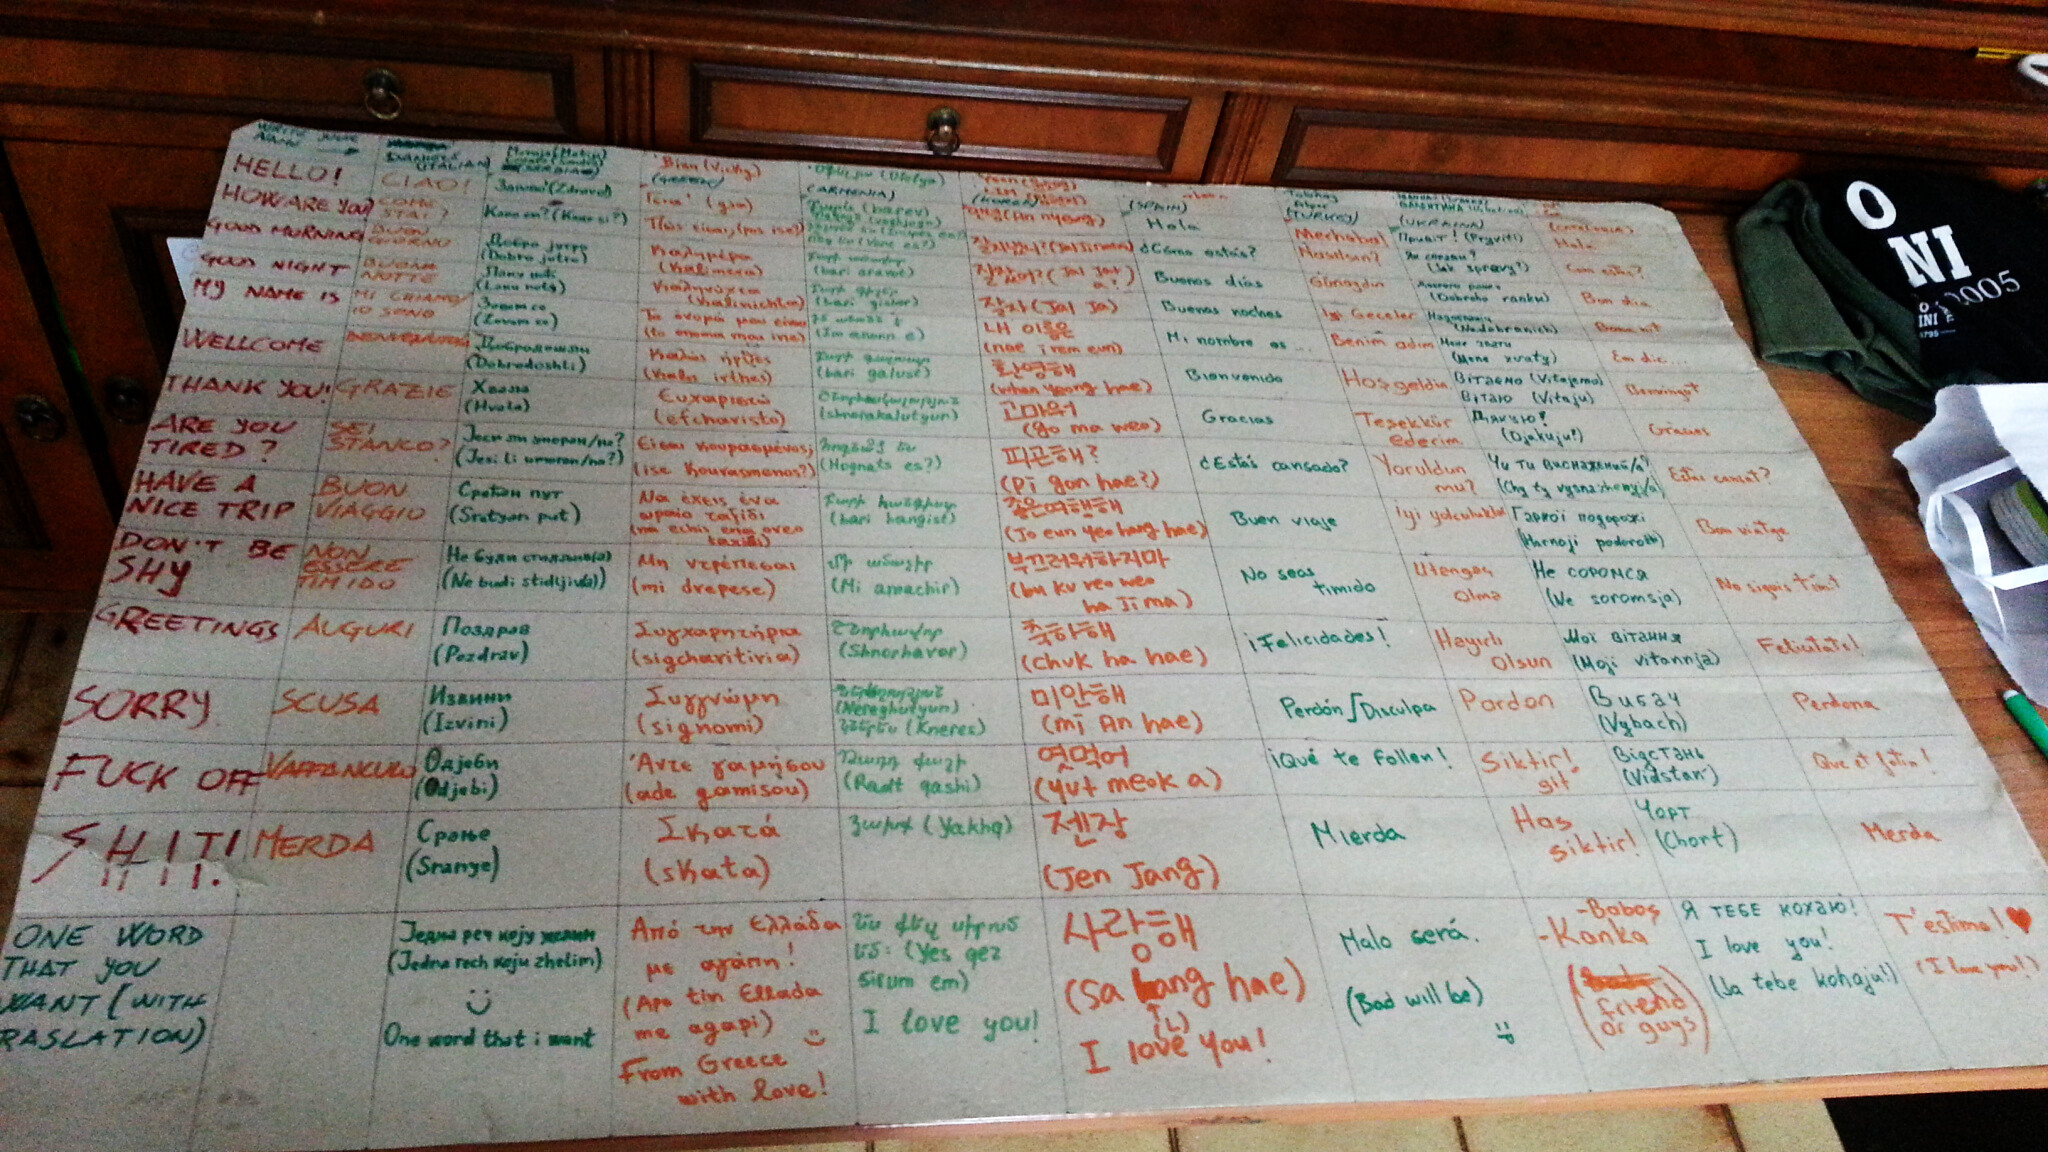 WRITE YOUR NAME
HELLO!
HOW ARE YOU?
GOOD MORNING
GOOD NIGHT
MY NAME IS
WELLCOME
THANK YOU!
ARE YOU
TIRED?
HAVE A
NICE TRIP
DON'T BE
SHY
GREETINGS
SORRY
FUCK OFF
SHIT!
ONE WORD
THAT YOU
WANT (WITH
RASLATION)
(ITALIAN)
CIAO!
COME
STAI?
BUON
GIORNO
BUONA
NOTTE
MI CHIAMO/
IO SONO
GRAZIE
SEI
STANCO?
BUON
VIAGGIO
NON
ESSERE
TIMIDO
AUGURI
SCUSA
VAFFANCULO
MERDA
(SERBIA)
(Zdravo)
Како си? (Kako si?)
Добро јутро
(Dobro jutro)
Лаку ноћ
(Laku noć)
Зовем се
(Zovem se)
Добродошли
(Dobrodoshli)
Хвала
(Hvala)
Јеси ли уморан/на?
(Jesi li umoran/na?)
Срећан пут
(Sretyan put)
Не буди стидљив(а)
(Ne budi stidljiv(a))
Поздрав
(Pozdrav)
Извини
(Izvini)
Одјеби
(Odjebi)
Срање
(Sranye)
Једна реч коју желим
(Jedna rech koju zhelim)
One word that i want
(Vicky)
(GREECE)
Γεια (gia)
Πώς είσαι; (pos ise?)
Καλημέρα
(kalimera)
Καληνύχτα
(kalinichta)
Το όνομά μου είναι
(to onoma mou ine)
Καλώς ήρθες
(kalos irthes)
Ευχαριστώ
(efcharisto)
Είσαι κουρασμένος;
(ise kourasmenos?)
Να έχεις ένα
ωραίο ταξίδι
(na echis ena oreo
taxidi)
Μη ντρέπεσαι
(mi drepese)
Συγχαρητήρια
(sigcharitiria)
Συγγνώμη
(signomi)
Άντε γαμήσου
(ade gamisou)
Σκατά
(skata)
Από την Ελλάδα
με αγάπη!
(Apo tin Ellada
me agapi)
From Greece
with love!
(ARMENIA)
(barev)
(bari aravot)
(bari gisher)
(Im anunn e)
(bari galust)
(shnorakalutyun)
(Hognats es?)
(bari hangist)
(Mi amachir)
Շնորհավոր
(Shnorhavor)
(Nereghutyun)
(Kneres)
(Radt qashi)
(Yakhq)
(Yes qez
sirum em)
I love you!
(KOREA)
(An nyeong)
잘자 (Jal Ja)
내 이름은
(nae i rem eun)
환영해
(whan yeong hae)
고마워
(go ma weo)
피곤해?
(pi gon hae?)
좋은여행해
(Jo eun yeo hang hae)
부끄러워하지마
(bu ku reo weo
ha Ji ma)
축하해
(chuk ha hae)
미안해
(mi An hae)
엿먹어
(yut meok a)
젠장
(Jen Jang)
사랑해
(Sa lang hae)
(L)
I love you!
(SPAIN)
Hola
¿Cómo estás?
Buenos días
Buenas noches
Mi nombre es ...
Bienvenido
Gracias
¿Estás cansado?
Buen viaje
No seas
timido
¡Felicidades!
Perdón / Disculpa
¡Qué te follen!
Mierda
Malo será.
(Bad will be)
(TURKEY)
Merhaba!
Nasılsın?
Günaydın
İyi Geceler
Benim adım
Hoşgeldin
Teşekkür
ederim
Yoruldun
mu?
İyi yolculuklar
Utangaç
olma
Hayırlı
Olsun
Pardon
Siktir!
git
Has
siktir!
-Baboş
-Kanka
friend
or guys)
(UKRAINA)
Привіт! (Pryvit!)
Як справи?
(Jak spravy?)
(Dobroho ranku)
(Nadobranich)
Мене звати
(Mene zvaty)
Вітаємо (Vitajemo)
Вітаю (Vitaju)
Дякую!
(Djakuju!)
Чи ти виснажений/а?
(Chy ty vysnazhenyj/a)
Гарної подорожі
(Harnoji podorozh)
Не соромся
(Ne soromsja)
Мої вітання
(Moji vitannja)
Вибач
(Vybach)
Відстань
(Vidstan')
Чорт
(Chort)
Я ТЕБЕ КОХАЮ!
I love you!
(Ja tebe kohaju!)
(CATALONIA)
Hola
Com estàs?
Bon dia
Bona nit
Em dic...
Benvingut
Gràcies
Estàs cansat?
Bon viatge
No siguis tímit
Felicitats!
Perdona
Que et fotin!
Merda
T'estimo!
(I love you!)
O
NI
2005